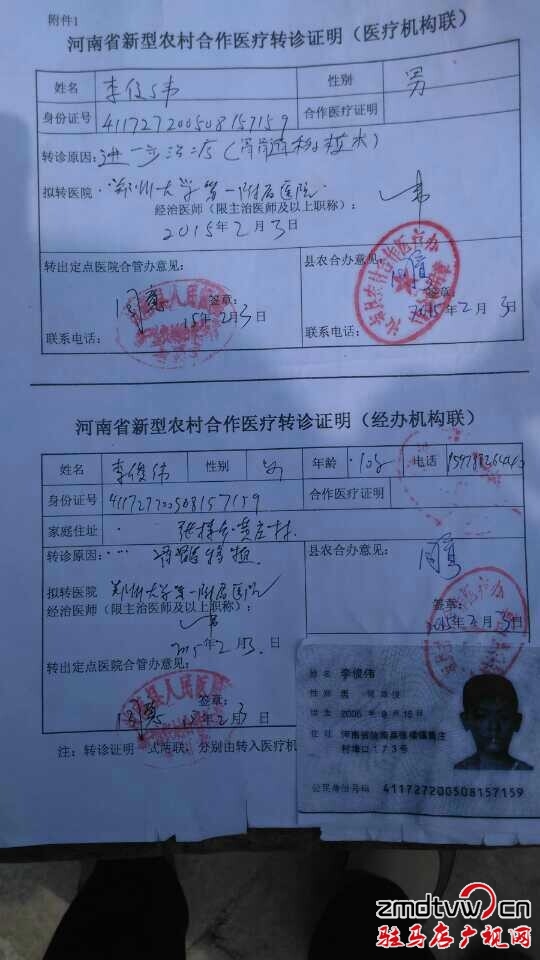 附件1
河南省新型农村合作医疗转诊证明（医疗机构联）
姓名 李俊伟 性别 男
身份证号 411727200508157159 合作医疗证明
转诊原因：进一步治疗（骨髓移植）
拟转医院 郑州大学第一附属医院
经治医师（限主治医师及以上职称）：
2015年2月3日
转出定点医院合管办意见： 县农合办意见：
县人民医院
签章： 签章：
15年2月3日 2015年2月3日
联系电话： 联系电话：
河南省新型农村合作医疗转诊证明（经办机构联）
姓名 李俊伟 性别 男 年龄 10岁 电话
身份证号 411727200508157159 合作医疗证明
家庭住址 张楼乡黄庄村
转诊原因： 骨髓移植 县农合办意见：
拟转医院 郑州大学第一附属医院
经治医师（限主治医师及以上职称）：
签章：
2015年2月3日 2015年2月3日
转出定点医院合管办意见：
县人民医院
签章：
15年2月3日
注：转诊证明一式两联，分别由转入医疗机
姓名 李俊伟
性别 男 民族 汉
出生 2005年8月15日
住址 河南省汝南县张楼镇黄庄
村埠口173号
公民身份号码 411727200508157159
zmdtvw.cn
驻马店广视网